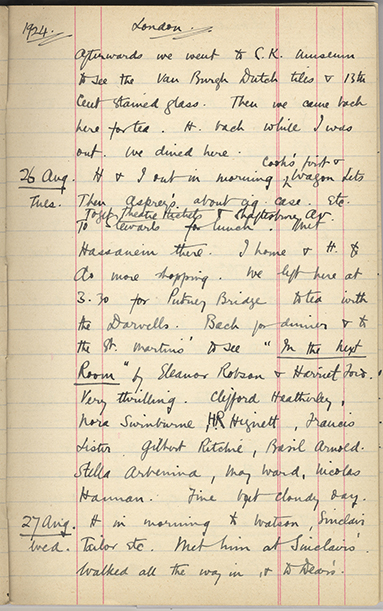 1924. London.
Afterwards we went to S.K. Museum
to see the Van Burgh Dutch tiles & 13th
Cent stained glass. Then we came back
here for tea. H. back while I was
out. We dined here.
Cook's first &
26 Aug. H & I out in morning Wagon Lits
Tues. Then Asprey's about cig. case. Etc.
To get Theatre tickets & Shaftesbury Av.
To Stewarts for lunch. Met
Hassanein there. I home & H. to
do more shopping. We left here at
3.30 for Putney Bridge to tea with
the Darvells. Back for dinner & to
the St. Martins' to see "In the next
Room" by Eleanor Robson & Harriet Ford.
Very thrilling. Clifford Heatherley,
Nora Swinburne, HR Hignett, Francis
Lister. Gilbert Ritchie, Basil Arnold.
Stella Arbenina, May Ward, Nicolas
Hannan. Fine but cloudy day.
27 Aug. H in morning to Watson, Sinclair
Wed. Tailor etc. Met him at Sinclairs'.
Walked all the way in, & to Dear's.